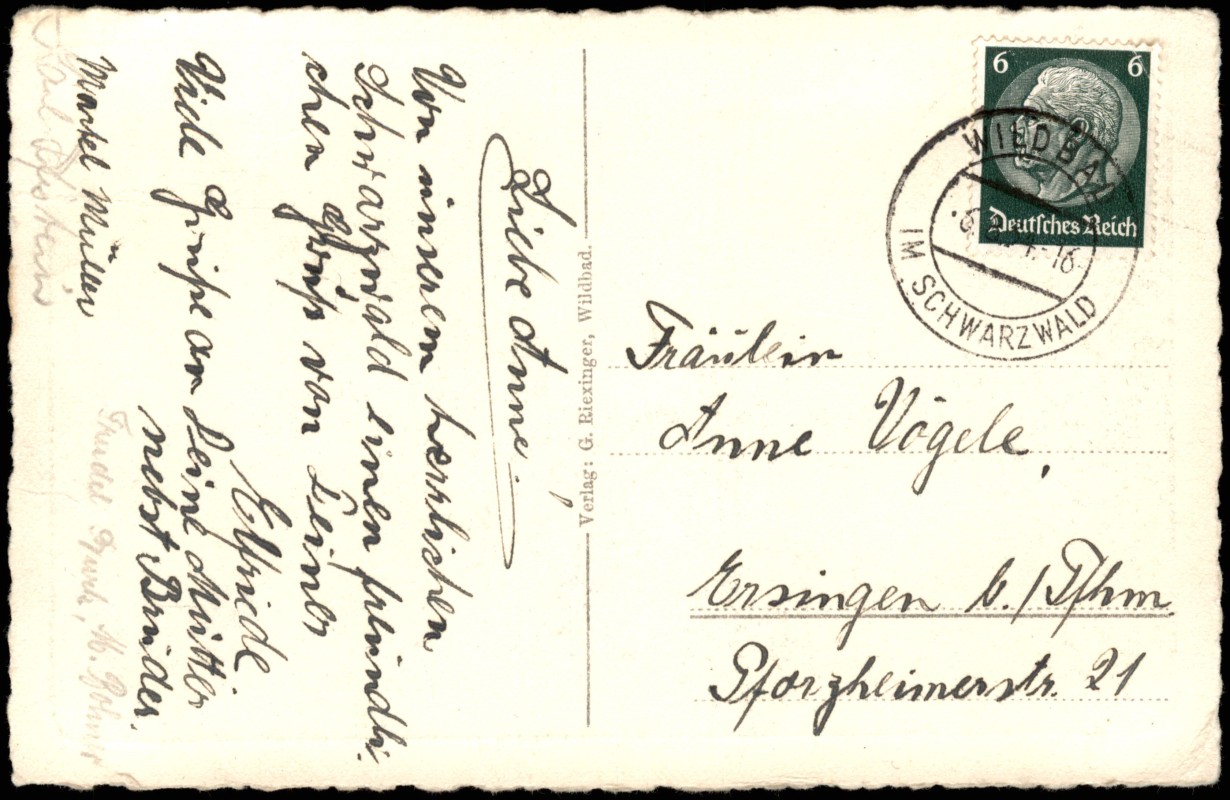 Liebe Anne.
Von unserem herrlichen
Schwarzwald einen freundli-
chen Gruß von Deiner
Elfriede
Viele Grüße an Deine Mutter
nebst Bruder.
Martel Müller
Trudel
Verlag: G. Riexinger, Wildbad.
6 6
Deutsches Reich
WILDBAD
IM SCHWARZWALD
Fräulein
Anne Vögele,
Ersingen b./Pfhm
Pforzheimerstr. 21